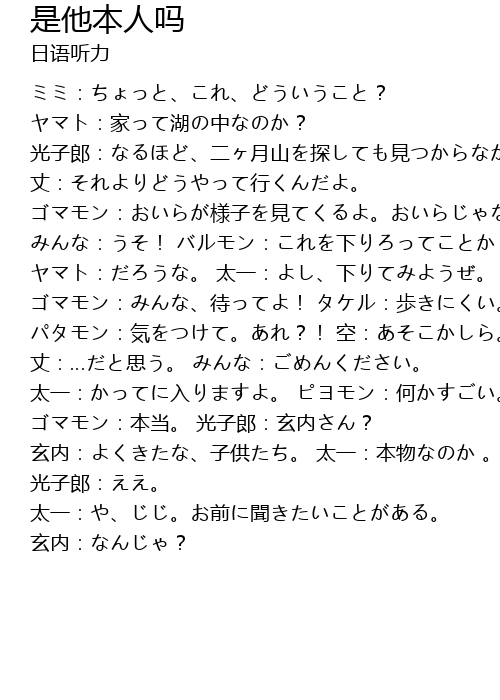 是他本人吗
日语听力
ミミ：ちょっと、これ、どういうこと？
ヤマト：家って湖の中なのか？
光子郎：なるほど、二ヶ月山を探しても見つからなか
丈：それよりどうやって行くんだよ。
ゴマモン：おいらが様子を見てくるよ。おいらじゃな
みんな：うそ！ バルモン：これを下りろってことか
ヤマト：だろうな。 太一：よし、下りてみようぜ。
ゴマモン：みんな、待ってよ！ タケル：歩きにくい。
パタモン：気をつけて。あれ？！ 空：あそこかしら。
丈：...だと思う。 みんな：ごめんください。
太一：かってに入りますよ。 ピヨモン：何かすごい。
ゴマモン：本当。 光子郎：玄内さん？
玄内：よくきたな、子供たち。 太一：本物なのか 。
光子郎：ええ。
太一：や、じじ。お前に聞きたいことがある。
玄内：なんじゃ？